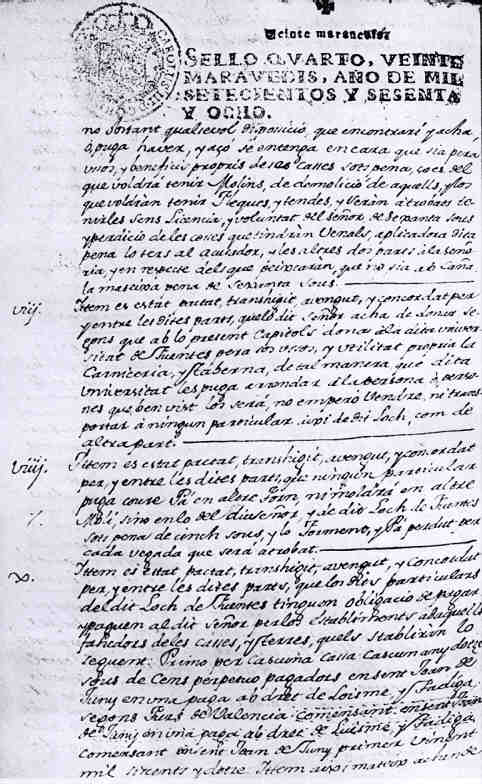 Veinte maravedis
SELLO QVARTO, VEINTE
MARAVEDIS, AÑO DE MIL
SETECIENTOS Y SESENTA
Y OCHO.
CAROLUS III
no obstant qualsevol disposicio, que encontrari y acha
ò puga haver, y açò se entenga encara que sia pera
usos, y beneficis propris de ses casses sots pena, ço es del
que voldrà tenir Molins, de demolicio de aquells, y los
que voldran tenir Fleques, y tendes, y seràn atrobats te-
nirles sens licencia, y voluntat del señor de sexanta sous
y perdicio de les coses que tindràn venals, aplicadora dita
pena lo terç al acusador, y les altres dos parts à la seño-
ria, y en respecte dels que peixcaràn, que no sia ab caña
la mateixa pena de sexanta sous.
viij. Ittem es estat pactat, transhigit, avengut, y concordat per
y entre les dites parts, que lo dit Señor acha de donar se-
gons que ab lo present Capitol dona à la dita Univer-
sitat de Fuentes pera sos usos, y utilitat propria la
Carniceria, y Taberna, de tal manera que dita
Universitat les puga arrendar à la persona ò perso-
nes que ben vist los serà, no empero vendre, ni trans-
portar à ningun particular, aixi de dit Loch, com de
altra part.
viiij. Ittem es estat pactat, transhigit, avengut, y concordat
per, y entre les dites parts, que ningun particular
puga coure Pà en altre Forn, ni moldrà en altre
Molí, sino en lo del dit señor, y de dit Loch de Fuentes
sots pena de cinch sous, y lo Forment, y Pà perdut per
cada vegada que serà atrobat.
x. Ittem es estat pactat, transhigit, avengut, y concordat
per, y entre les dites parts, que los dits particulars
del dit Loch de Fuentes tinguen obligacio de pagar
y paguen al dit Señor per los establiments à daquells
fahedors de les casses, y terres, quels stabliràn lo
seguent: Primo per cascuna cassa cascun any dotze
sous de cens perpetuo pagadors en sent Joan de
Juny en una paga ab dret de Loisme, y Fadiga
segons Furs de Valencia comensant en sent Joan
de Juny en una paga ab dret de Luisme, y Fadiga
comensant en sent Joan de Juny primer vinent
mil sixcents y dotze. Ittem aixi mateix achen de